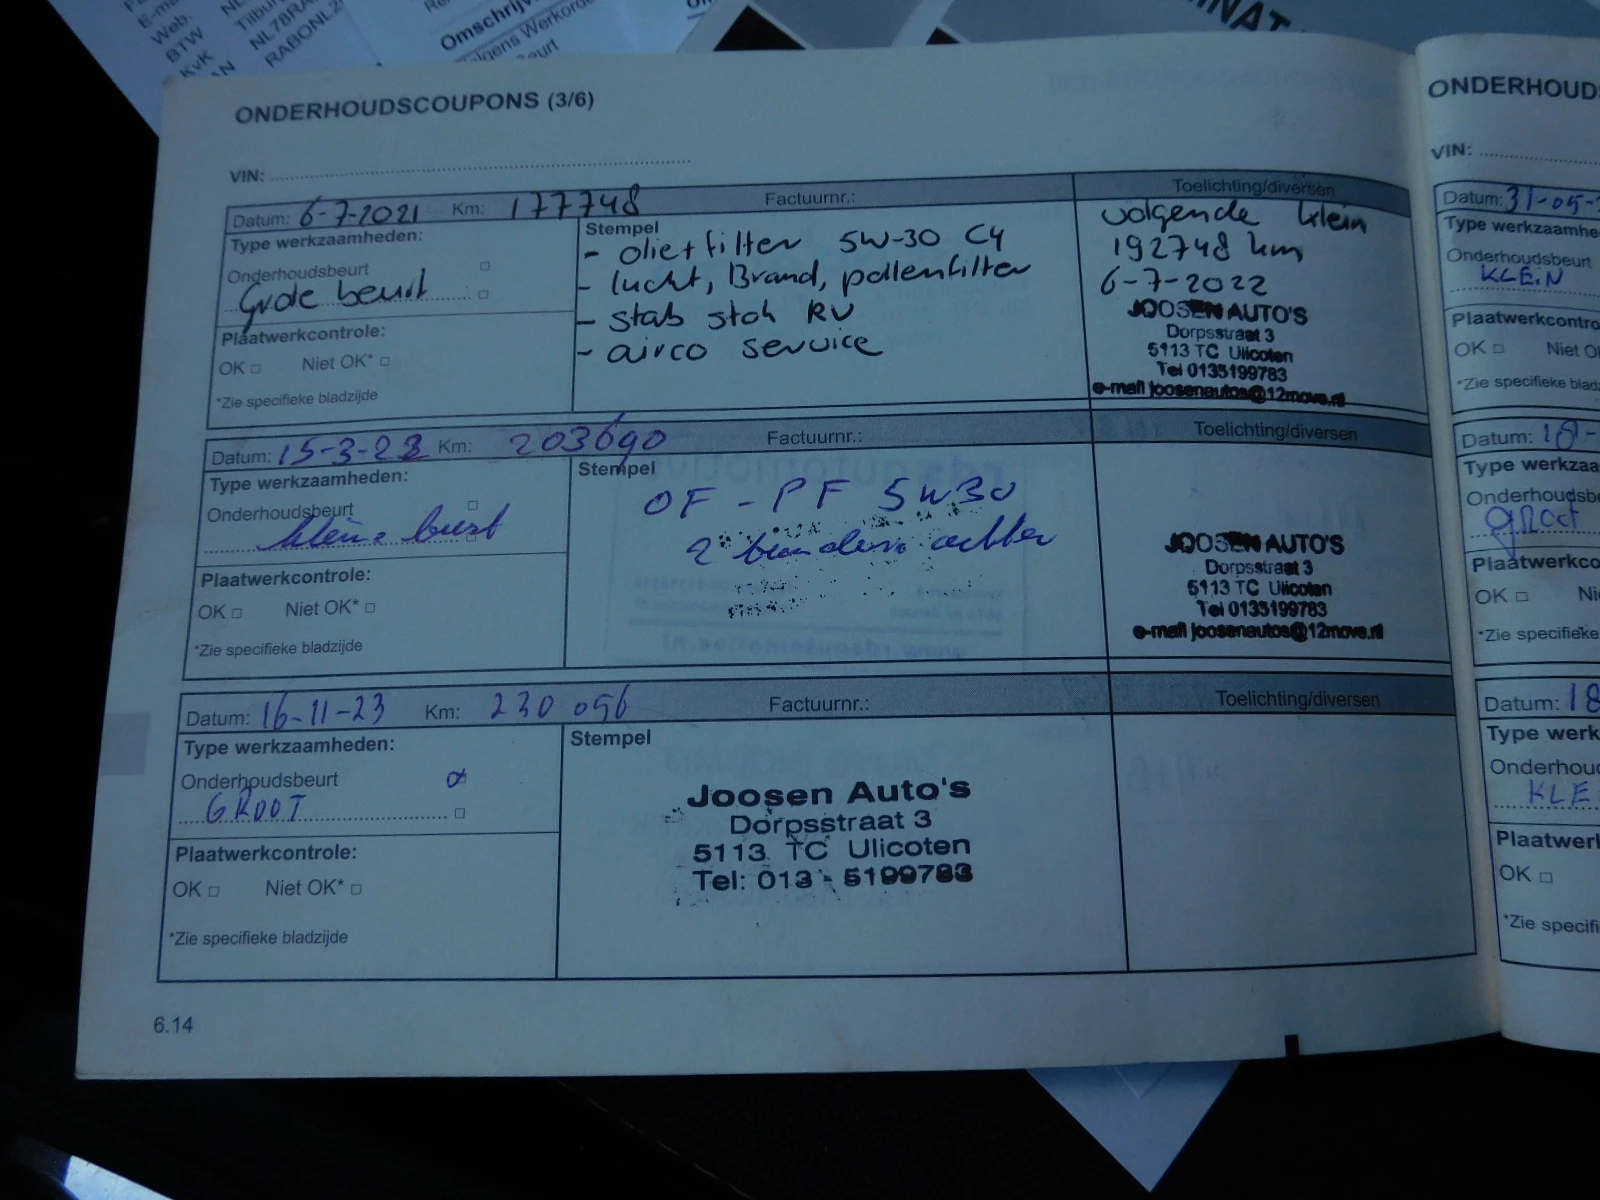 E-ma
Web.
BTW
KvK
Tilbu
NL78RA
RABONL2
Omschrijv
olgens Werkorde
eurt
NAT
ONDERHOUDSCOUPONS (3/6)
VIN:
Datum: 6-7-2021 Km: 177748 Factuurnr.: Toelichting/diversen
Type werkzaamheden:
Onderhoudsbeurt
Grote beurt
Plaatwerkcontrole:
OK Niet OK*
*Zie specifieke bladzijde
Stempel
- olie+filter 5W-30 C4
- lucht, Brand, pollenfilter
- stab stah RV
- airco service
volgende klein
192748 km
6-7-2022
JOOSEN AUTO'S
Dorpsstraat 3
5113 TC Ulicoten
Tel 0135199783
e-mail joosenautos@12move.nl
Datum: 15-3-23 Km: 203690 Factuurnr.: Toelichting/diversen
Type werkzaamheden:
Onderhoudsbeurt
kleine beurt
Plaatwerkcontrole:
OK Niet OK*
*Zie specifieke bladzijde
Stempel
OF - PF 5W30
2 banden achter
JOOSEN AUTO'S
Dorpsstraat 3
5113 TC Ulicoten
Tel 0135199783
e-mail joosenautos@12move.nl
Datum: 16-11-23 Km: 230 096 Factuurnr.: Toelichting/diversen
Type werkzaamheden:
Onderhoudsbeurt
GROOT
Plaatwerkcontrole:
OK Niet OK*
*Zie specifieke bladzijde
Stempel
Joosen Auto's
Dorpsstraat 3
5113 TC Ulicoten
Tel: 013 - 5199783
6.14
ONDERHOUDS
VIN:
Datum: 31-05-
Type werkzaamhe
Onderhoudsbeurt
KLEIN
Plaatwerkcontro
OK Niet O
*Zie specifieke blad
Datum: 18-
Type werkza
Onderhoudsbe
groot
Plaatwerkco
OK Ni
*Zie specifieke
Datum: 18
Type werk
Onderhou
KLE
Plaatwerk
OK
*Zie specifi